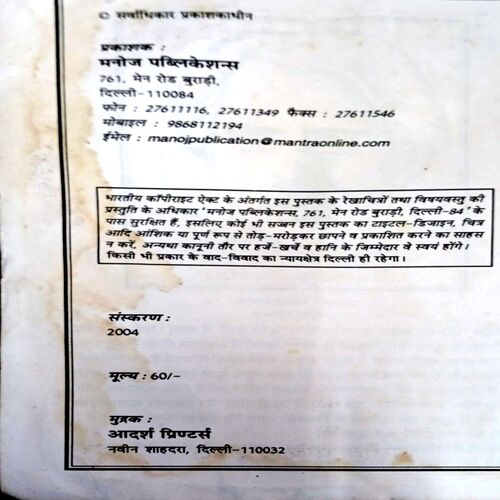 © सर्वाधिकार प्रकाशकाधीन
प्रकाशक :
मनोज पब्लिकेशन्स
761, मेन रोड बुराड़ी,
दिल्ली-110084
फोन : 27611116, 27611349 फैक्स : 27611546
मोबाइल : 9868112194
ईमेल : manojpublication@mantraonline.com
भारतीय कॉपीराइट ऐक्ट के अंतर्गत इस पुस्तक के रेखाचित्रों तथा विषयवस्तु की
प्रस्तुति के अधिकार 'मनोज पब्लिकेशन्स, 761, मेन रोड बुराड़ी, दिल्ली-84' के
पास सुरक्षित हैं, इसलिए कोई भी सज्जन इस पुस्तक का टाइटल-डिजाइन, चित्र
आदि आंशिक या पूर्ण रूप से तोड़-मरोड़कर छापने व प्रकाशित करने का साहस
न करें, अन्यथा कानूनी तौर पर हर्जे-खर्चे व हानि के जिम्मेदार वे स्वयं होंगे।
किसी भी प्रकार के वाद-विवाद का न्यायक्षेत्र दिल्ली ही रहेगा।
संस्करण :
2004
मूल्य : 60/-
मुद्रक :
आदर्श प्रिण्टर्स
नवीन शाहदरा, दिल्ली-110032